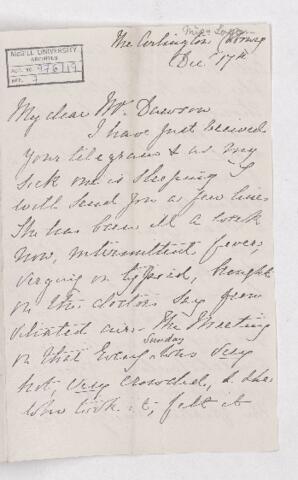 Miss Logan
McGILL UNIVERSITY
ARCHIVES
ACC. NO. 976/19
REF. 7
The Arlington Cobourg
Dec 17th
My dear Mr. Dawson
I have just received
your telegram & as my
sick one is sleeping I
will send you a few lines
She has been ill a week
now, intermittent fever,
verging on typhoid, brought
on the doctors say from
vitiated air. The Meeting
on that Sunday Evening was very
hot, very crowded, & she
who took it, felt it